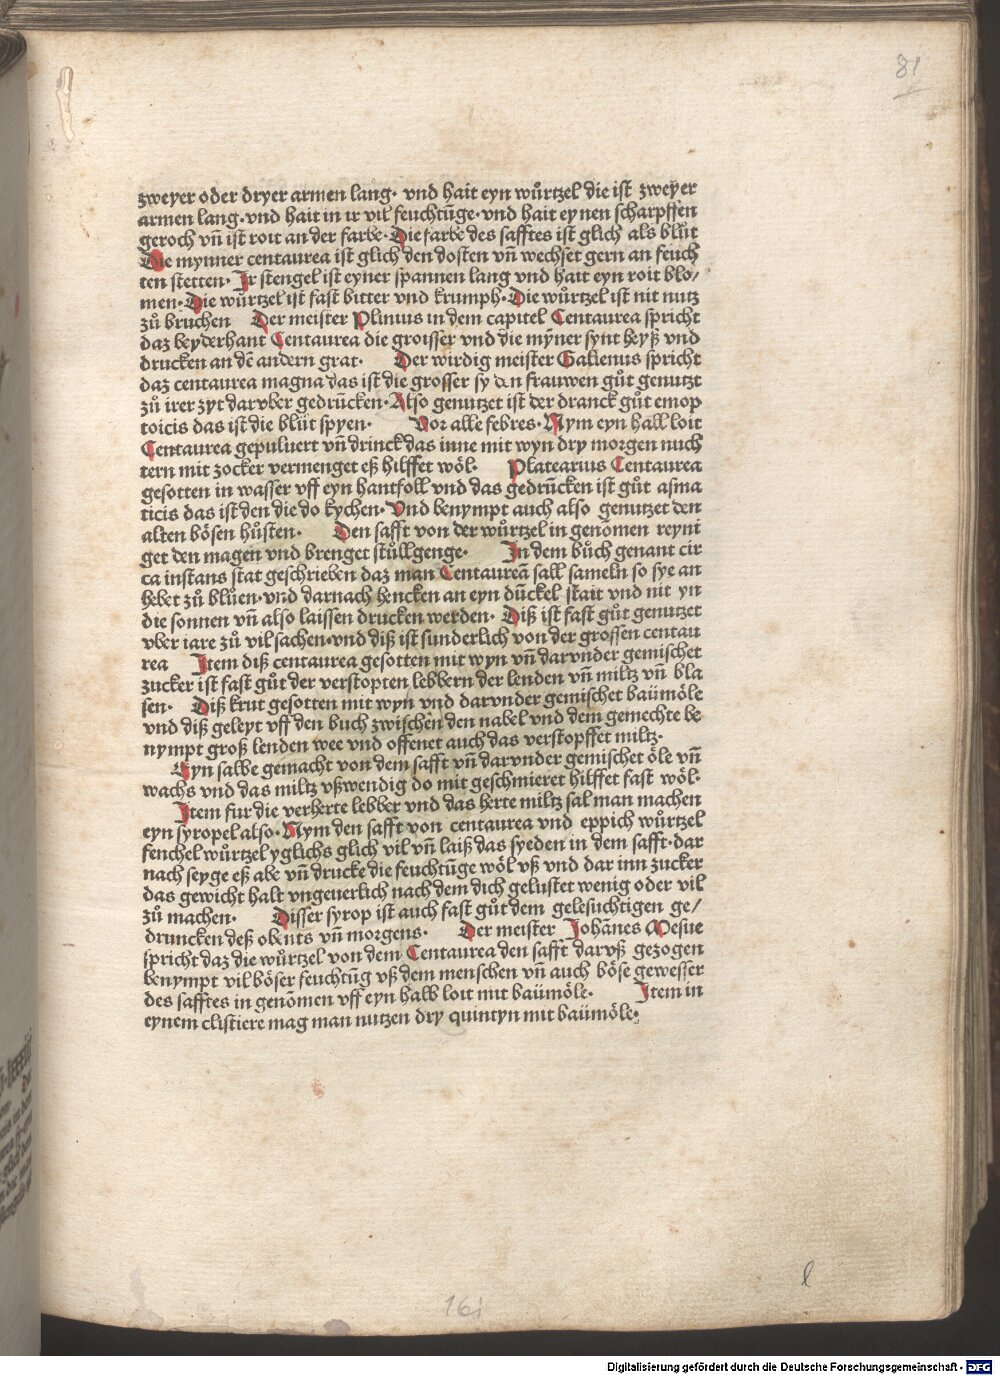 81
zweyer oder dryer armen lang· vnd hait eyn wůrtzel die ist zweyer
armen lang·vnd hait in ir vil feuchtūge·vnd hait eynen scharpffen
geroch vn̄ ist roit an der farbe·Die farbe des safftes ist glich als blůt
Die mynner centaurea ist glich den dosten vn̄ wechset gern an feuch
ten stetten· Ir stengel ist eyner spannen lang vnd hait eyn roit blo/
men·Die wůrtzel ist fast bitter vnd krumph·Die wůrtzel ist nit nutz
zů bruchen Der meister Plinius in dem capitel Centaurea spricht
daz beyderhant Centaurea die groisser vnd die mỹner synt heyß vnd
drucken an dē andern grat· Der wirdig meister Galienus spricht
daz centaurea magna das ist die grosser sy den frauwen gůt genutzt
zů irer zyt darvber gedrūcken·Also genutzet ist der dranck gůt emop
toicis das ist die blůt spyen· Vor alle febres·Nym eyn hall loit
Centaurea gepuluert vn̄ drinck das inne mit wyn dry morgen nuch
tern mit zocker vermenget eß hilffet wöl· Platearius Centaurea
gesotten in wasser vff eyn hantfoll vnd das gedrūcken ist gůt asma
ticis das ist den die do kychen·Vnd benympt auch also genutzet den
alten bösen hůsten· Den safft von der wůrtzel in genōmen reyni
get den magen vnd brenget stůllgenge· In dem bůch genant cir
ca instans stat geschrieben daz man Centaureā sall sameln so sye an
hebet zů blůen·vnd darnach hencken an eyn dūckel stait vnd nit yn
die sonnen vn̄ also laissen drucken werden· Diß ist fast gůt genutzet
vber iare zů vil sachen·vnd diß ist sunderlich von der grossen centau
rea Item diß centaurea gesotten mit wyn vn̄ darvnder gemischet
zucker ist fast gůt der verstopten lebbern der lenden vn̄ miltz vn̄ bla
sen· Diß krut gesotten mit wyn vnd darvnder gemischet baümöle
vnd diß geleyt vff den buch zwischen den nabel vnd dem gemechte be
nympt groß lenden wee vnd offenet auch das verstopffet miltz·
Eyn salbe gemacht von dem safft vn̄ darvnder gemischet öle vn̄
wachs vnd das miltz vßwendig do mit geschmieret hilffet fast wöl·
Item fur die verherte lebber vnd das herte miltz sal man machen
eyn syropel also·Nym den safft von centaurea vnd eppich wůrtzel
fenchel wůrtzel yglichs glich vil vn̄ laiß das syeden in dem safft·dar
nach seyge eß abe vn̄ drucke die feuchtūge wöl vß vnd dar inn zucker
das gewicht halt vngeuerlich nach dem dich gelustet wenig oder vil
zů machen· Disser syrop ist auch fast gůt dem gelesuchtigen ge/
druncken deß obents vn̄ morgens· Der meister Johānes Mesue
spricht daz die wůrtzel von dem Centaurea den safft darvß gezogen
benympt vil böser feuchtūg vß dem menschen vn̄ auch böse gewesser
des safftes in genōmen vff eyn halb loit mit baümöle· Item in
eynem clistiere mag man nutzen dry quintyn mit baümöle·
l
161
Digitalisierung gefördert durch die Deutsche Forschungsgemeinschaft - DFG